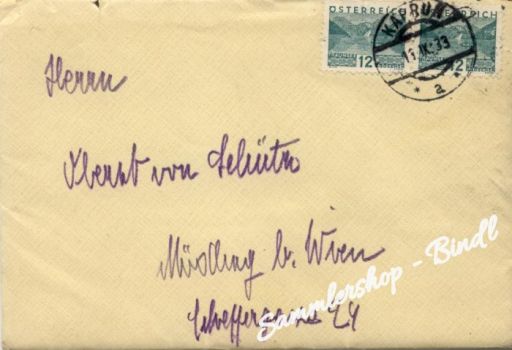 ÖSTERREICH ÖSTERREICH
TRAUNSEE
12 12
KAPRUN
11.IX.33
* a *
Herrn
Oberst von Schütz
Mödling b. Wien
Scheffergasse 24
Sammlershop - Bindl